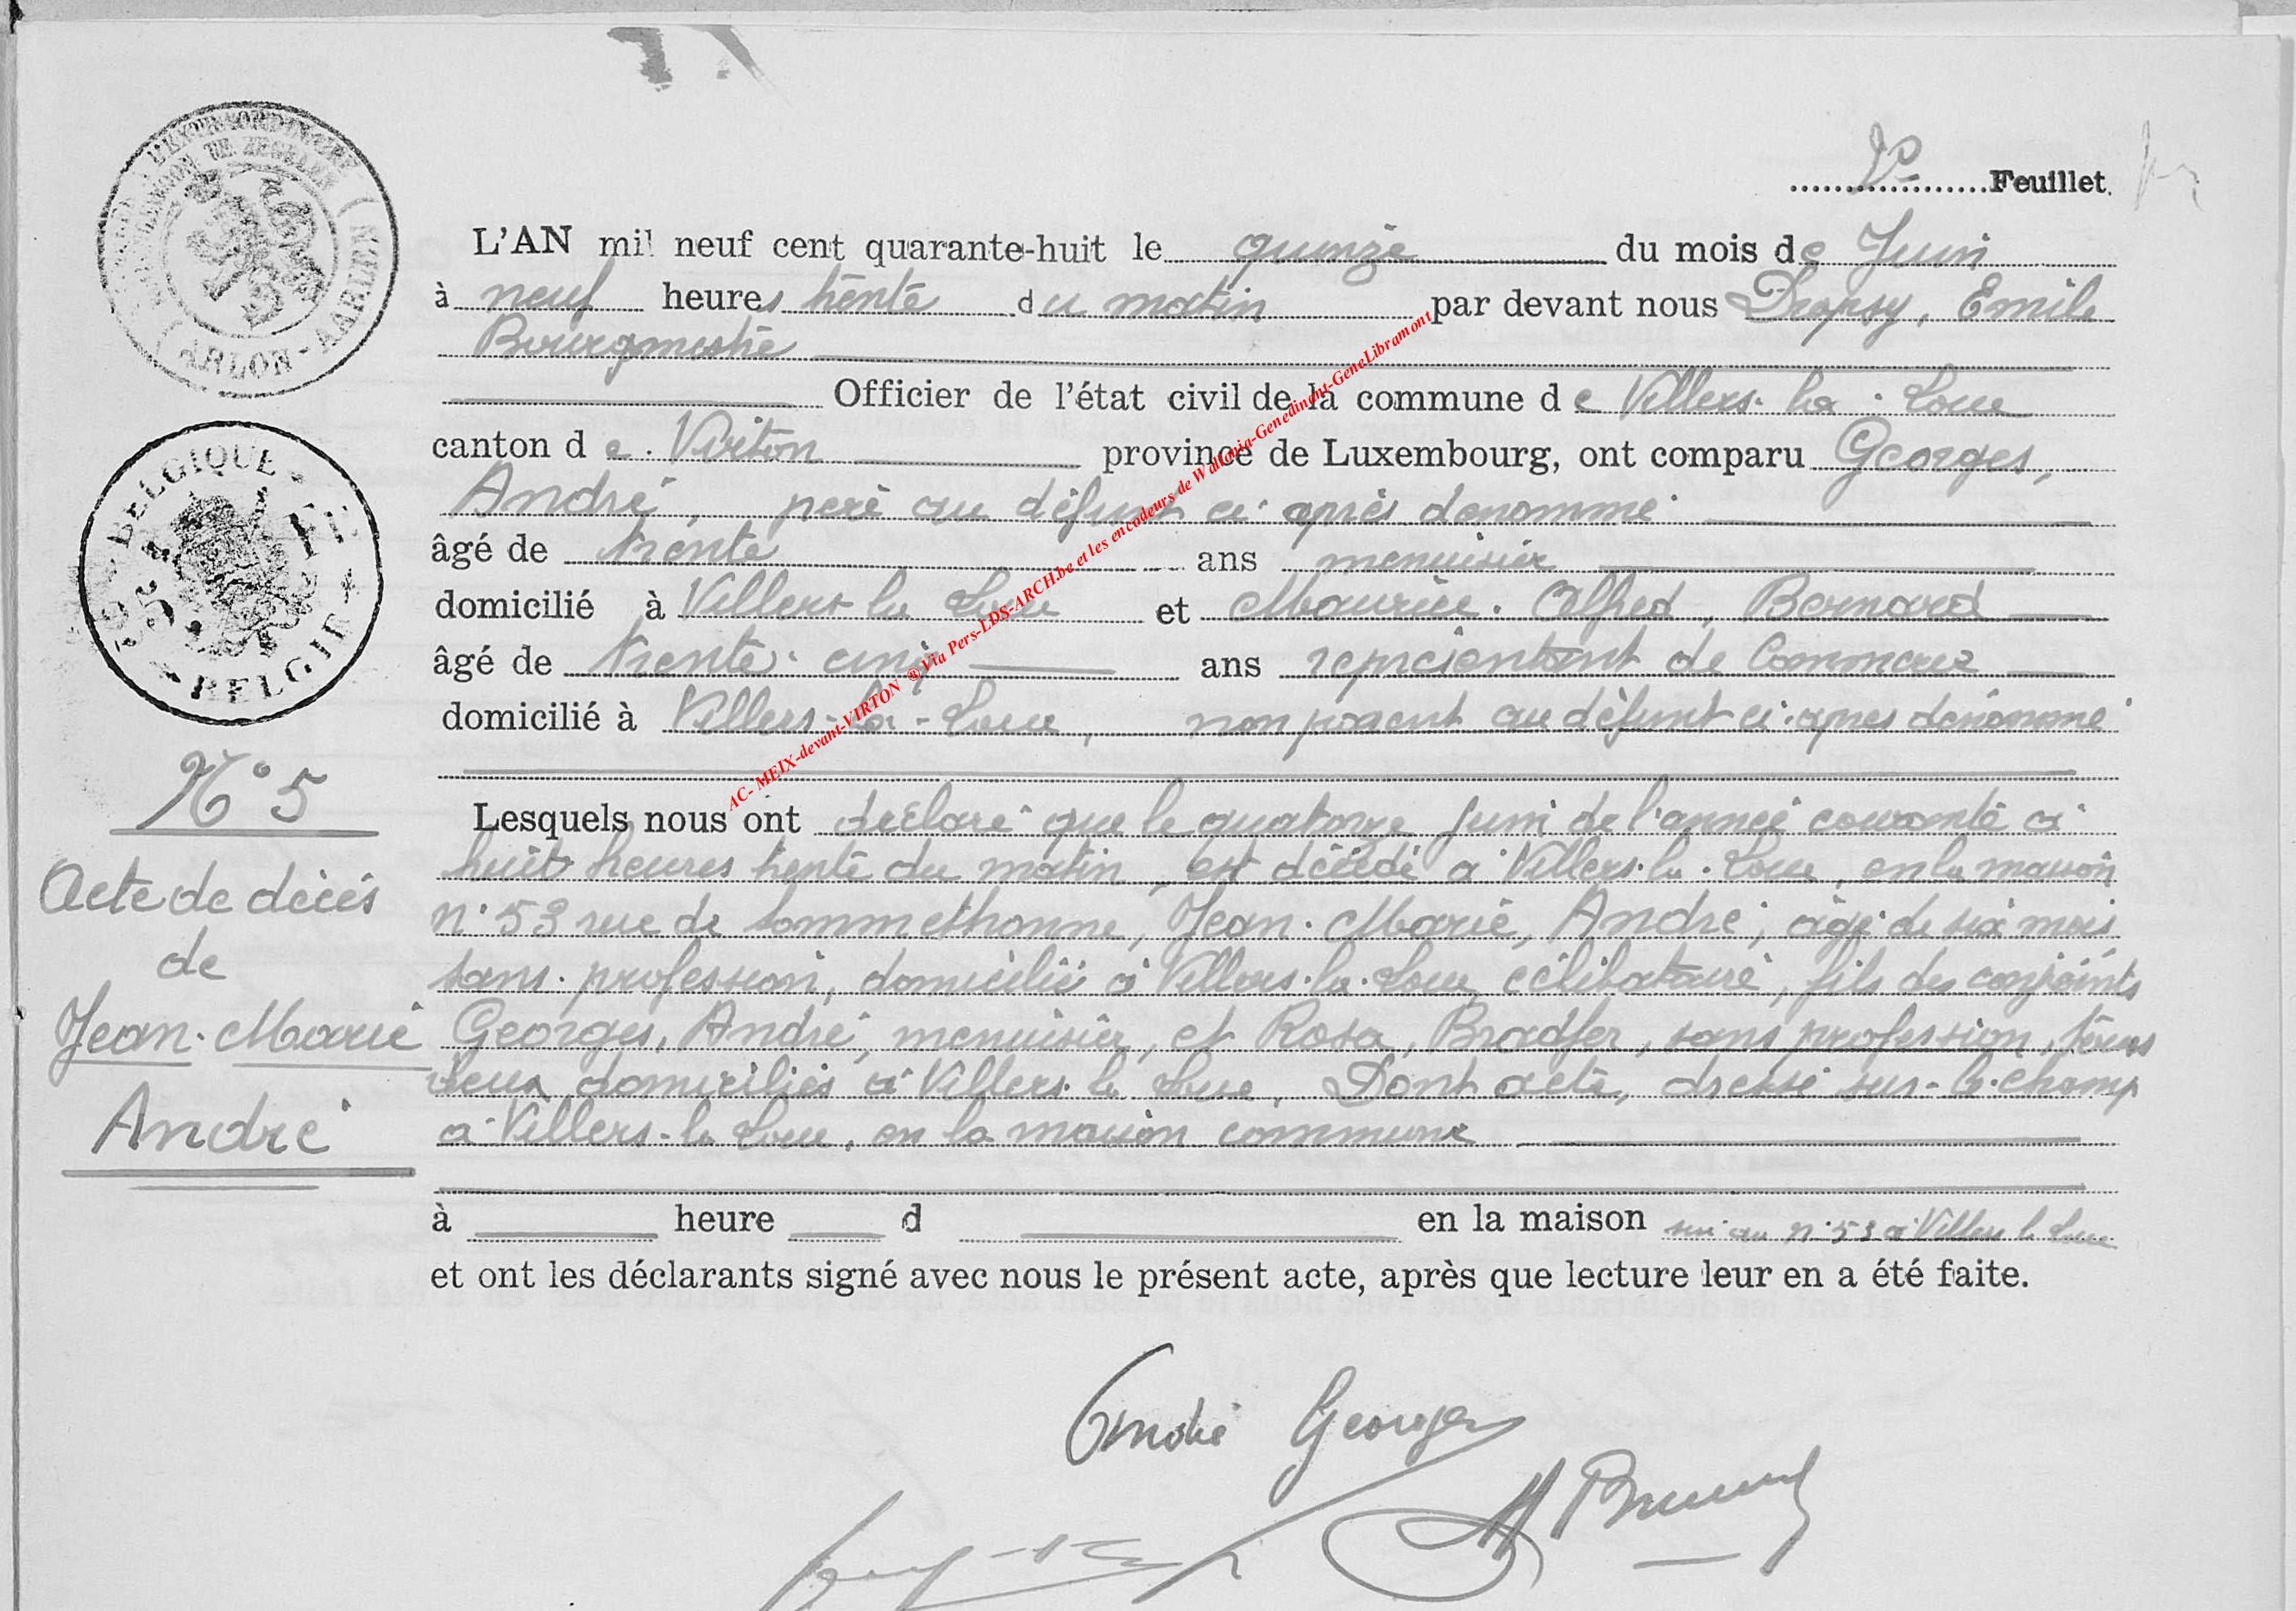 Feuillet.
L'AN mil neuf cent quarante-huit le quinze du mois de Juin
à neuf heures trente du matin par devant nous Drapsy, Emile
Bourgmestre
Officier de l'état civil de la commune de Villers-la-Loue
canton de Virton province de Luxembourg, ont comparu Georges,
André, père au défunt ci-après dénommé
âgé de trente ans menuisier
domicilié à Villers la Loue et Maurice-Alfred, Bernard
âgé de trente-cinq ans représentant de Commerce
domicilié à Villers-la-Loue, non parent au défunt ci-après dénommé
Lesquels nous ont déclaré que le quatorze Juin de l'année courante à
huit heures trente du matin, est décédé à Villers-la-Loue, en la maison
n° 53 rue de Sommethonne, Jean-Marie, André, âgé de six mois
sans profession, domicilié à Villers-la-Loue, célibataire, fils des conjoints
Georges, André, menuisier, et Rosa, Bradfer, sans profession, tous
deux domiciliés à Villers la Loue. Dont acte, dressé sur-le-champ
à Villers-la Loue, en la maison commune
à heure d en la maison sise au n° 53 à Villers la Loue
et ont les déclarants signé avec nous le présent acte, après que lecture leur en a été faite.
André Georges
N° 5
Acte de décès
de
Jean-Marie
André
ARLON - AARLEN
BELGIQUE
BELGIE
AC- MEIX-devant-VIRTON ® Via Pers-LDS-ARCH.be et les encodeurs de Wallonia-Genedinant-GeneLibramont